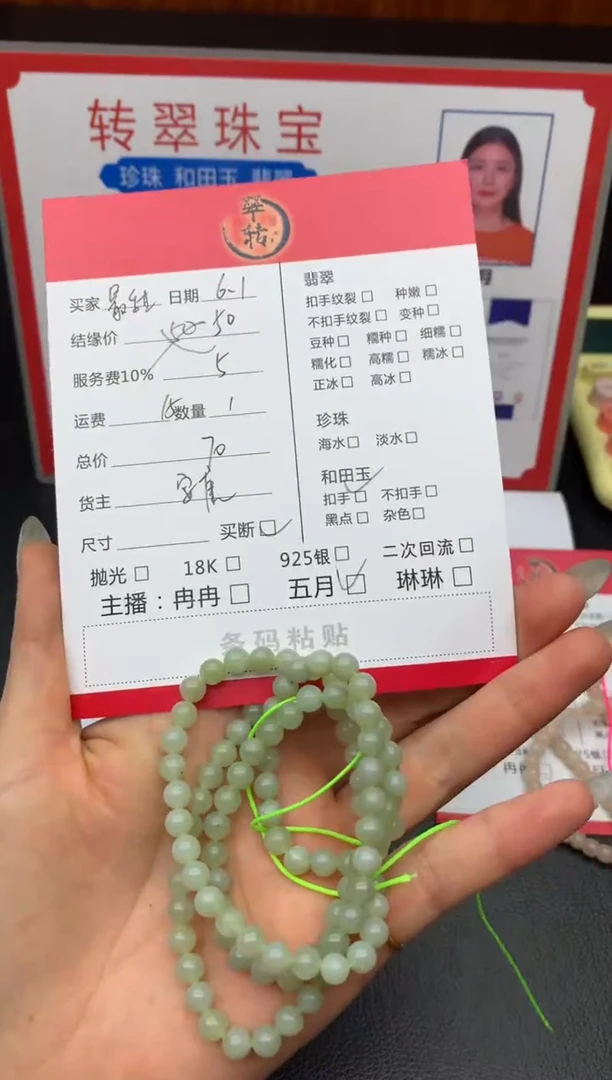 转翠珠宝
珍珠 和田玉 翡翠
翠转
买家 日期 6-1
结缘价 50 50
服务费10% 5
运费 15 数量 1
总价 70
货主
尺寸 买断□
翡翠
扣手纹裂□ 种嫩□
不扣手纹裂□ 变种□
豆种□ 糯种□ 细糯□
糯化□ 高糯□ 糯冰□
正冰□ 高冰□
珍珠
海水□ 淡水□
和田玉
扣手□ 不扣手□
黑点□ 杂色□
抛光□ 18K□ 925银□ 二次回流□
主播：冉冉□ 五月□ 琳琳□
条码粘贴